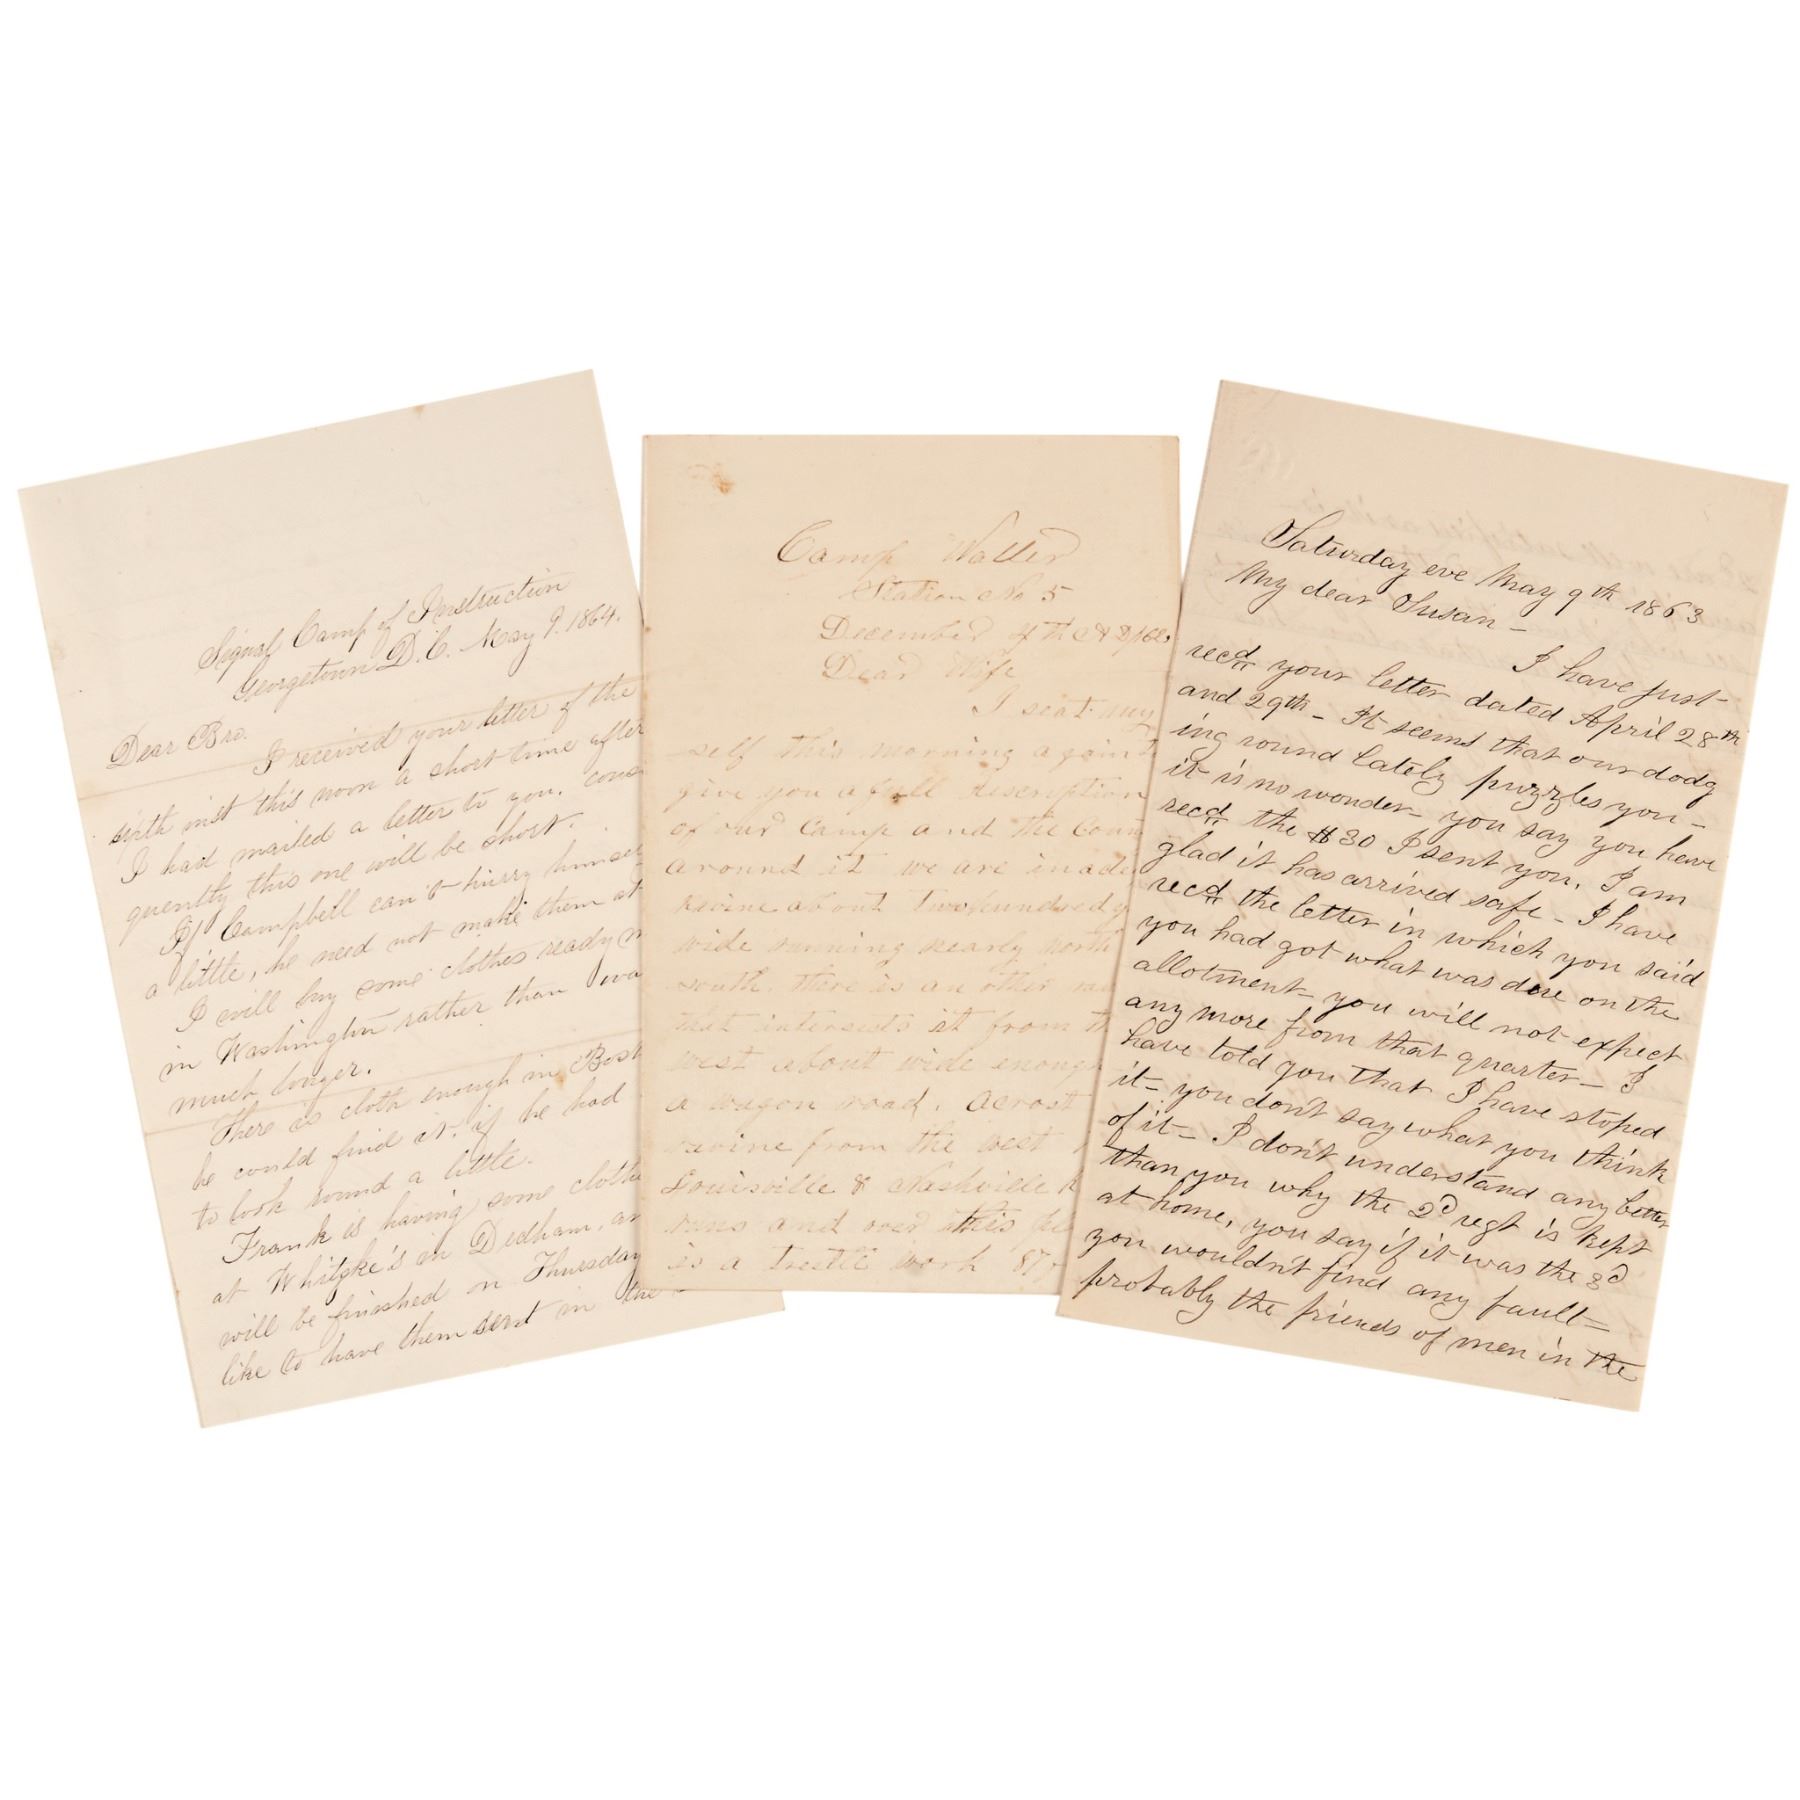 Signal Camp of Instruction
Georgetown D.C. May 9. 1864.
Dear Bro.
I received your letter of the
sixth inst this noon a short time after
I had mailed a letter to you. conse
quently this one will be short.
If Campbell can't hurry himsel
a little, he need not make them at
I will buy some clothes ready m
in Washington rather than wa
much longer.
There is cloth enough in Bost
he could find it, if he had
to look round a little.
Frank is having some clothe
at in Dedham, an
will be finished on Thursday
like to have them sent in the
Camp Waller
Station No 5
December 4th A D/62.
Dear Wife
I seat my
self this morning again t
give you a full discription
of our Camp and the Coun
around it we are in a de
Ravine about Two hundred y
wide running nearly north
south. there is an other
that intersects it from th
west about wide enoug
a wagon road. acrost
ravine from the west
Louisville & Nashville R
runs and over this
is a trestle work 87
Saturday eve May 9th 1863
My dear Susan -
I have just
recd your letter dated April 28th
and 29th - It seems that our dodg
ing round lately puzzles you -
it is no wonder - you say you have
recd the $30 I sent you. I am
glad it has arrived safe - I have
recd the letter in which you said
you had got what was due on the
allotment - you will not expect
any more from that quarter - I
have told you that I have stoped
it - you don't say what you think
of it - I don't understand any better
than you why the 2d regt is kept
at home, you say if it was the 3d
you wouldn't find any fault -
probably the friends of men in the